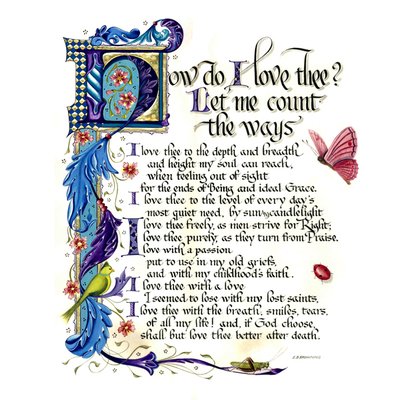 How do I love thee?
Let me count
the ways
I love thee to the depth and breadth
and height my soul can reach,
when feeling out of sight
for the ends of Being and ideal Grace.
I love thee to the level of every day's
most quiet need, by sun & candlelight
I love thee freely, as men strive for Right;
I love thee purely, as they turn from Praise.
I love with a passion
put to use in my old griefs,
and with my childhood's faith.
I love thee with a love
I seemed to lose with my lost saints,
I love thee with the breath, smiles, tears,
of all my life! and, if God choose,
shall but love thee better after death.
E B BROWNING